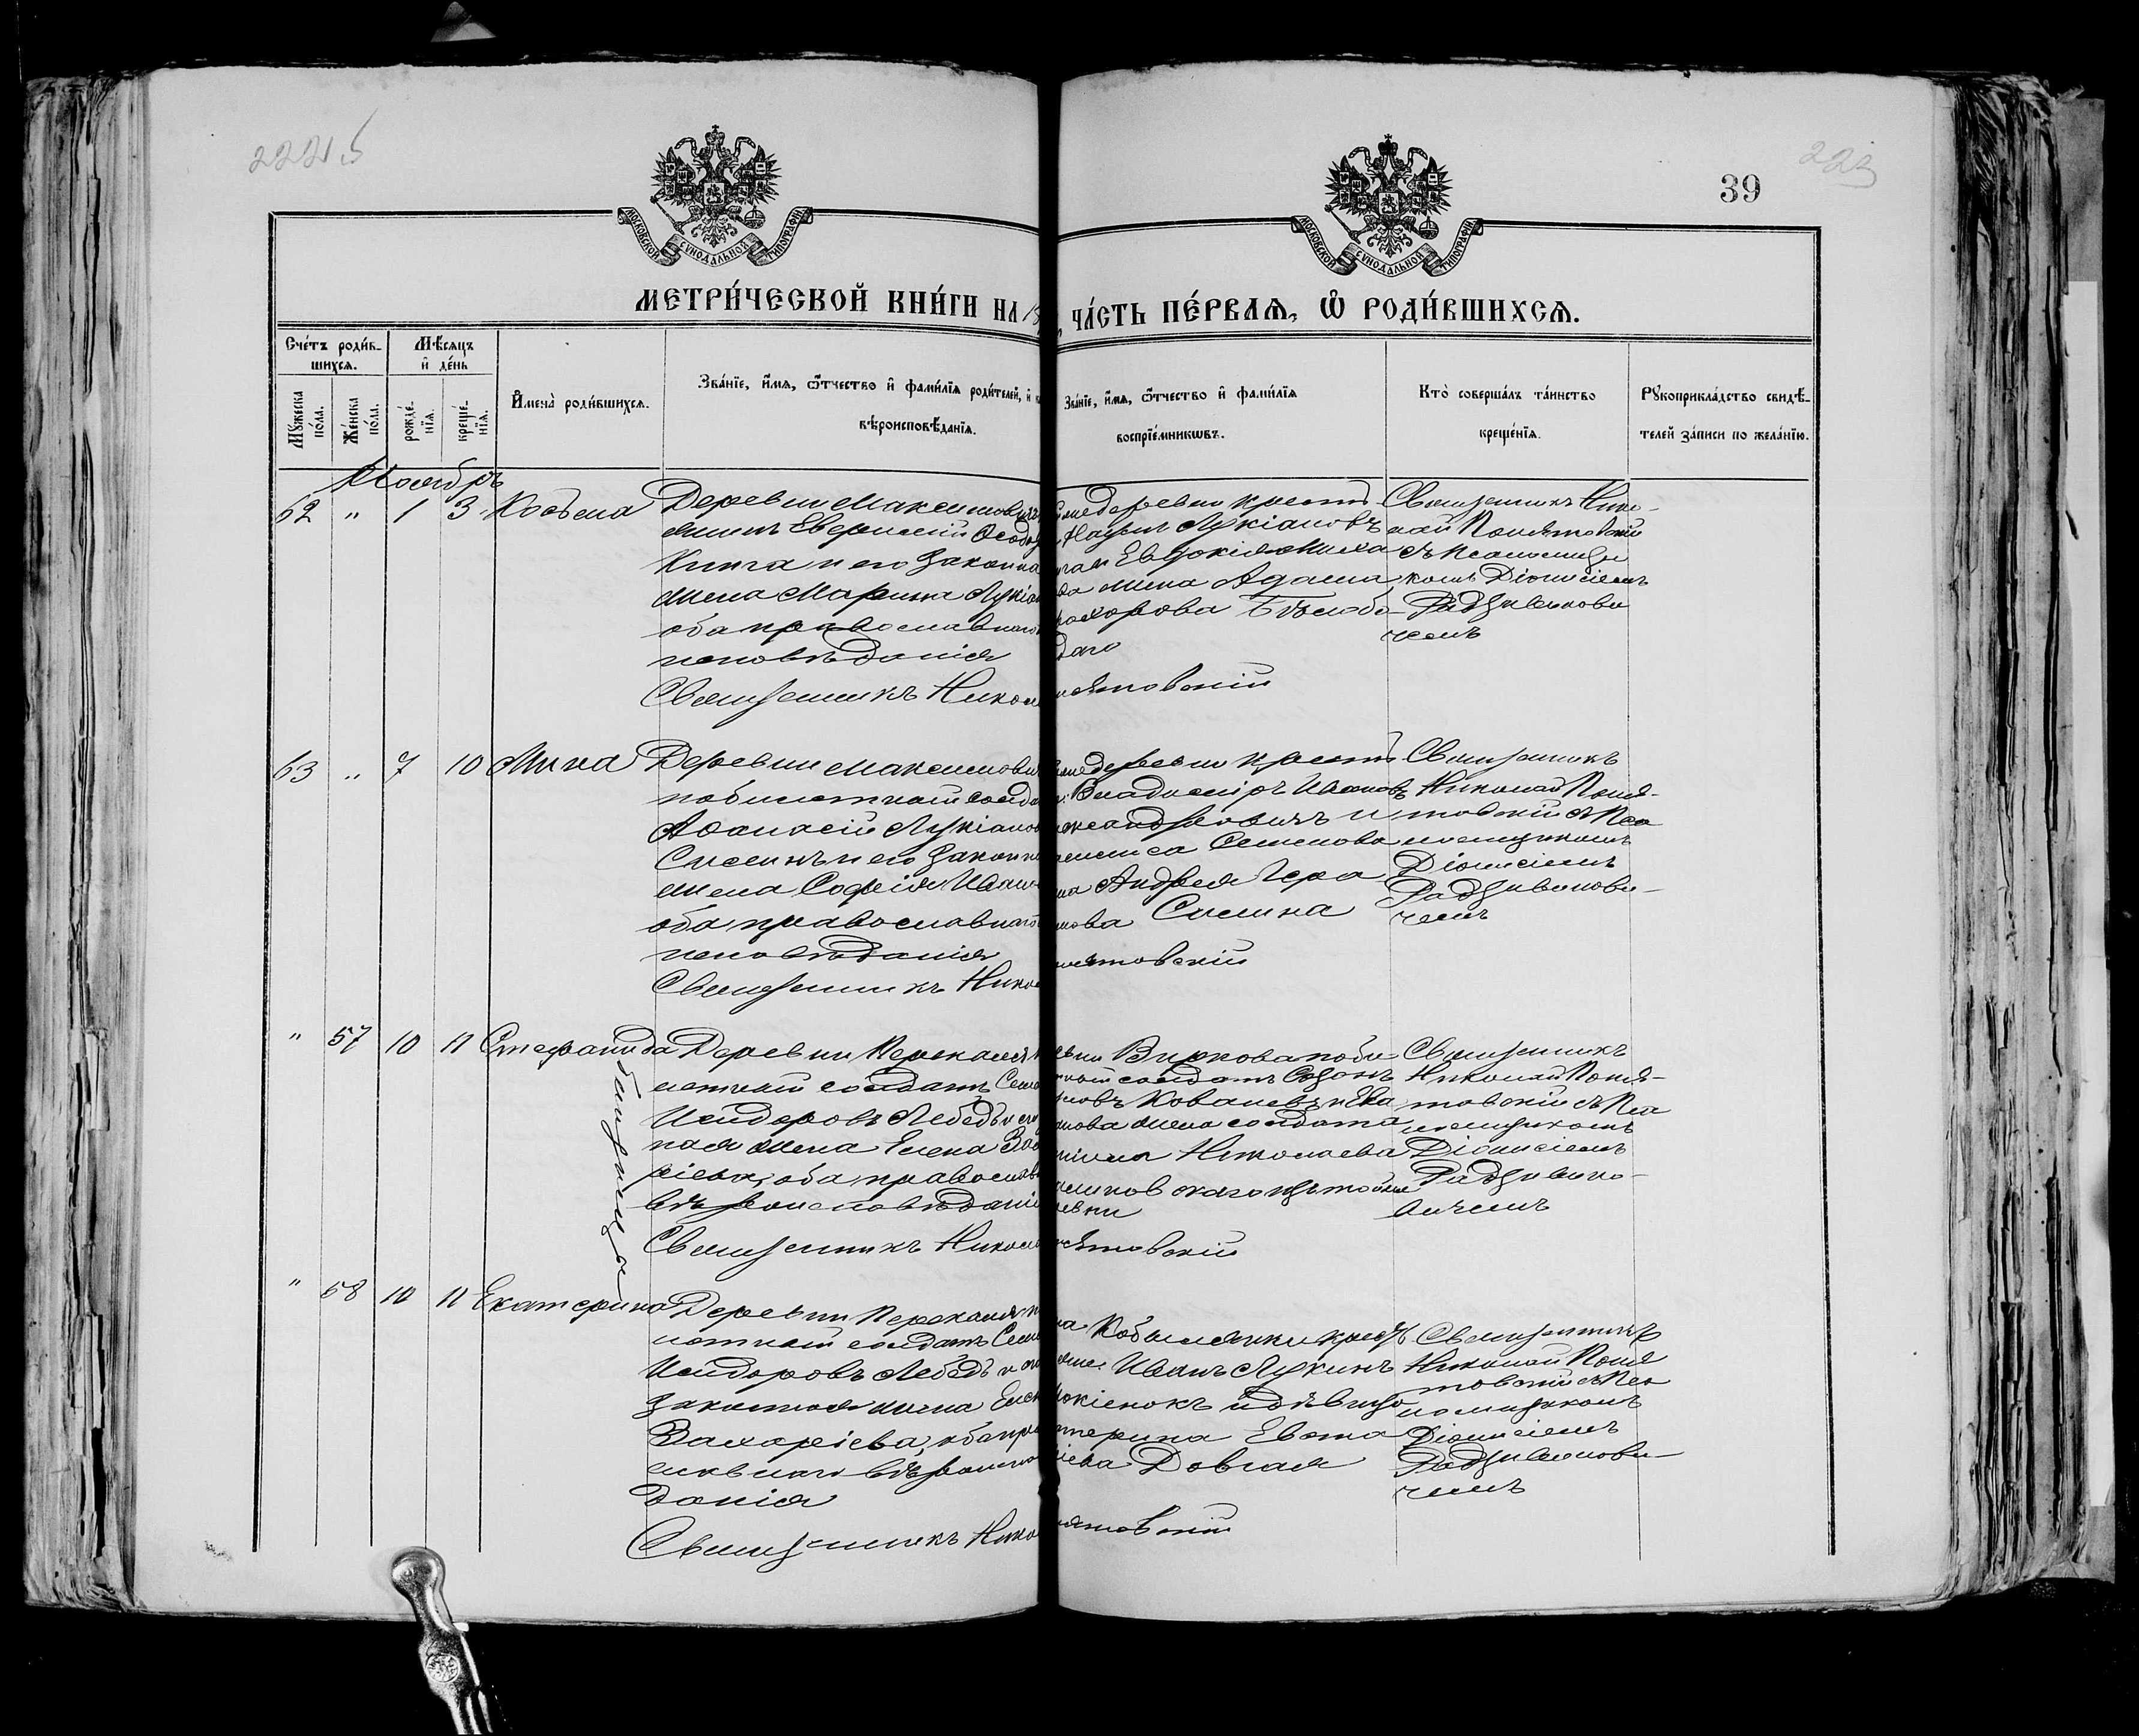 39
МОСКОВСКОЙ СѴНОДАЛЬНОЙ ТИПОГРАФІИ
МОСКОВСКОЙ СѴНОДАЛЬНОЙ ТИПОГРАФІИ
МЕТРИ́ЧЕСКОЙ КНИ́ГИ НА
ЧА́СТЬ ПЕ́РВАЯ, Ѡ РОДИ́ВШИХСЯ.
Сче́тъ роди́в-
шихся.
Мѣ́сяцъ
и де́нь
Му́жеска по́ла.
Же́нска по́ла.
рожде́-
нїя.
креще́-
нїя.
И҆мена̀ роди́вшихся.
Зва́нїе, и҆́мя, ѻ҆́тчество и҆ фами́лїя роди́телей, и
вѣроисповѣ́данїя.
Зва́нїе, и҆́мя, ѻ҆́тчество и҆ фами́лїя
воспрїе́мникѡвъ.
Кто̀ соверша́лъ та́инство
креще́нїя.
Рꙋкоприкла́дство свидѣ́-
телей за́писи по жела́нїю.
Ноябрь
62 " 1 3 Косьма
Деревни Максимович
Евфимій Ѳеодо
Книга и его законна
жена Марина Лукіа
оба православнаго
исповѣданія
Священникъ Никол
деревни крест
Наумъ Лукіановъ
Евдокія Миха
жена Адама
Прохорова Бѣлобо
даго
нятовскій
Священникъ Нико-
лай Понятовскій
съ Псаломщи
комъ Діонисіемъ
Радзивинови
чемъ
63 " 7 10 Мина
Деревни Максимови
побилетный солда
Аѳанасій Лукіанов
и его законна
жена Софія Иван
оба православнаго
исповѣданія
Священникъ Нико
деревни крест
Владиміръ Ивановъ
лександровичъ и
Семенова
на Андрея Гера
имова
нятовскій
Священникъ
Николай Поня-
товскій съ Пса
ломщикомъ
Діонисіемъ
Радзивинови-
чемъ
" 57 10 11 Стефанида
близнецы
Деревни Перекаля
летный солдатъ Семе
Исидоровъ Лебедь и его
ная жена Елена Зах
ріева, оба православ
вѣроисповѣданія
Священникъ Никола
Виркова поби
солдатъ Созонъ
новъ Ковалевъ и Ека
анова жена солдата
Николаева
евни
нятовскій
Священникъ
Николай Поня-
товскій съ Пса
ломщикомъ
Діонисіемъ
Радзивино-
вичемъ
" 58 10 11 Екатерина
Деревни Перекаля
летный солдатъ Семе
Исидоровъ Лебедь и его
законная жена Елен
Захаріева, оба пра
славнаго вѣроиспо
данія
Священникъ Нико
Кобылянки крест
Иванъ Лукинъ
Мокіенокъ и дѣвица
терина Евста
іева Довгая
нятовскій
Священникъ
Николай Поня
товскій съ Пса
ломщикомъ
Діонисіемъ
Радзивинови-
чемъ